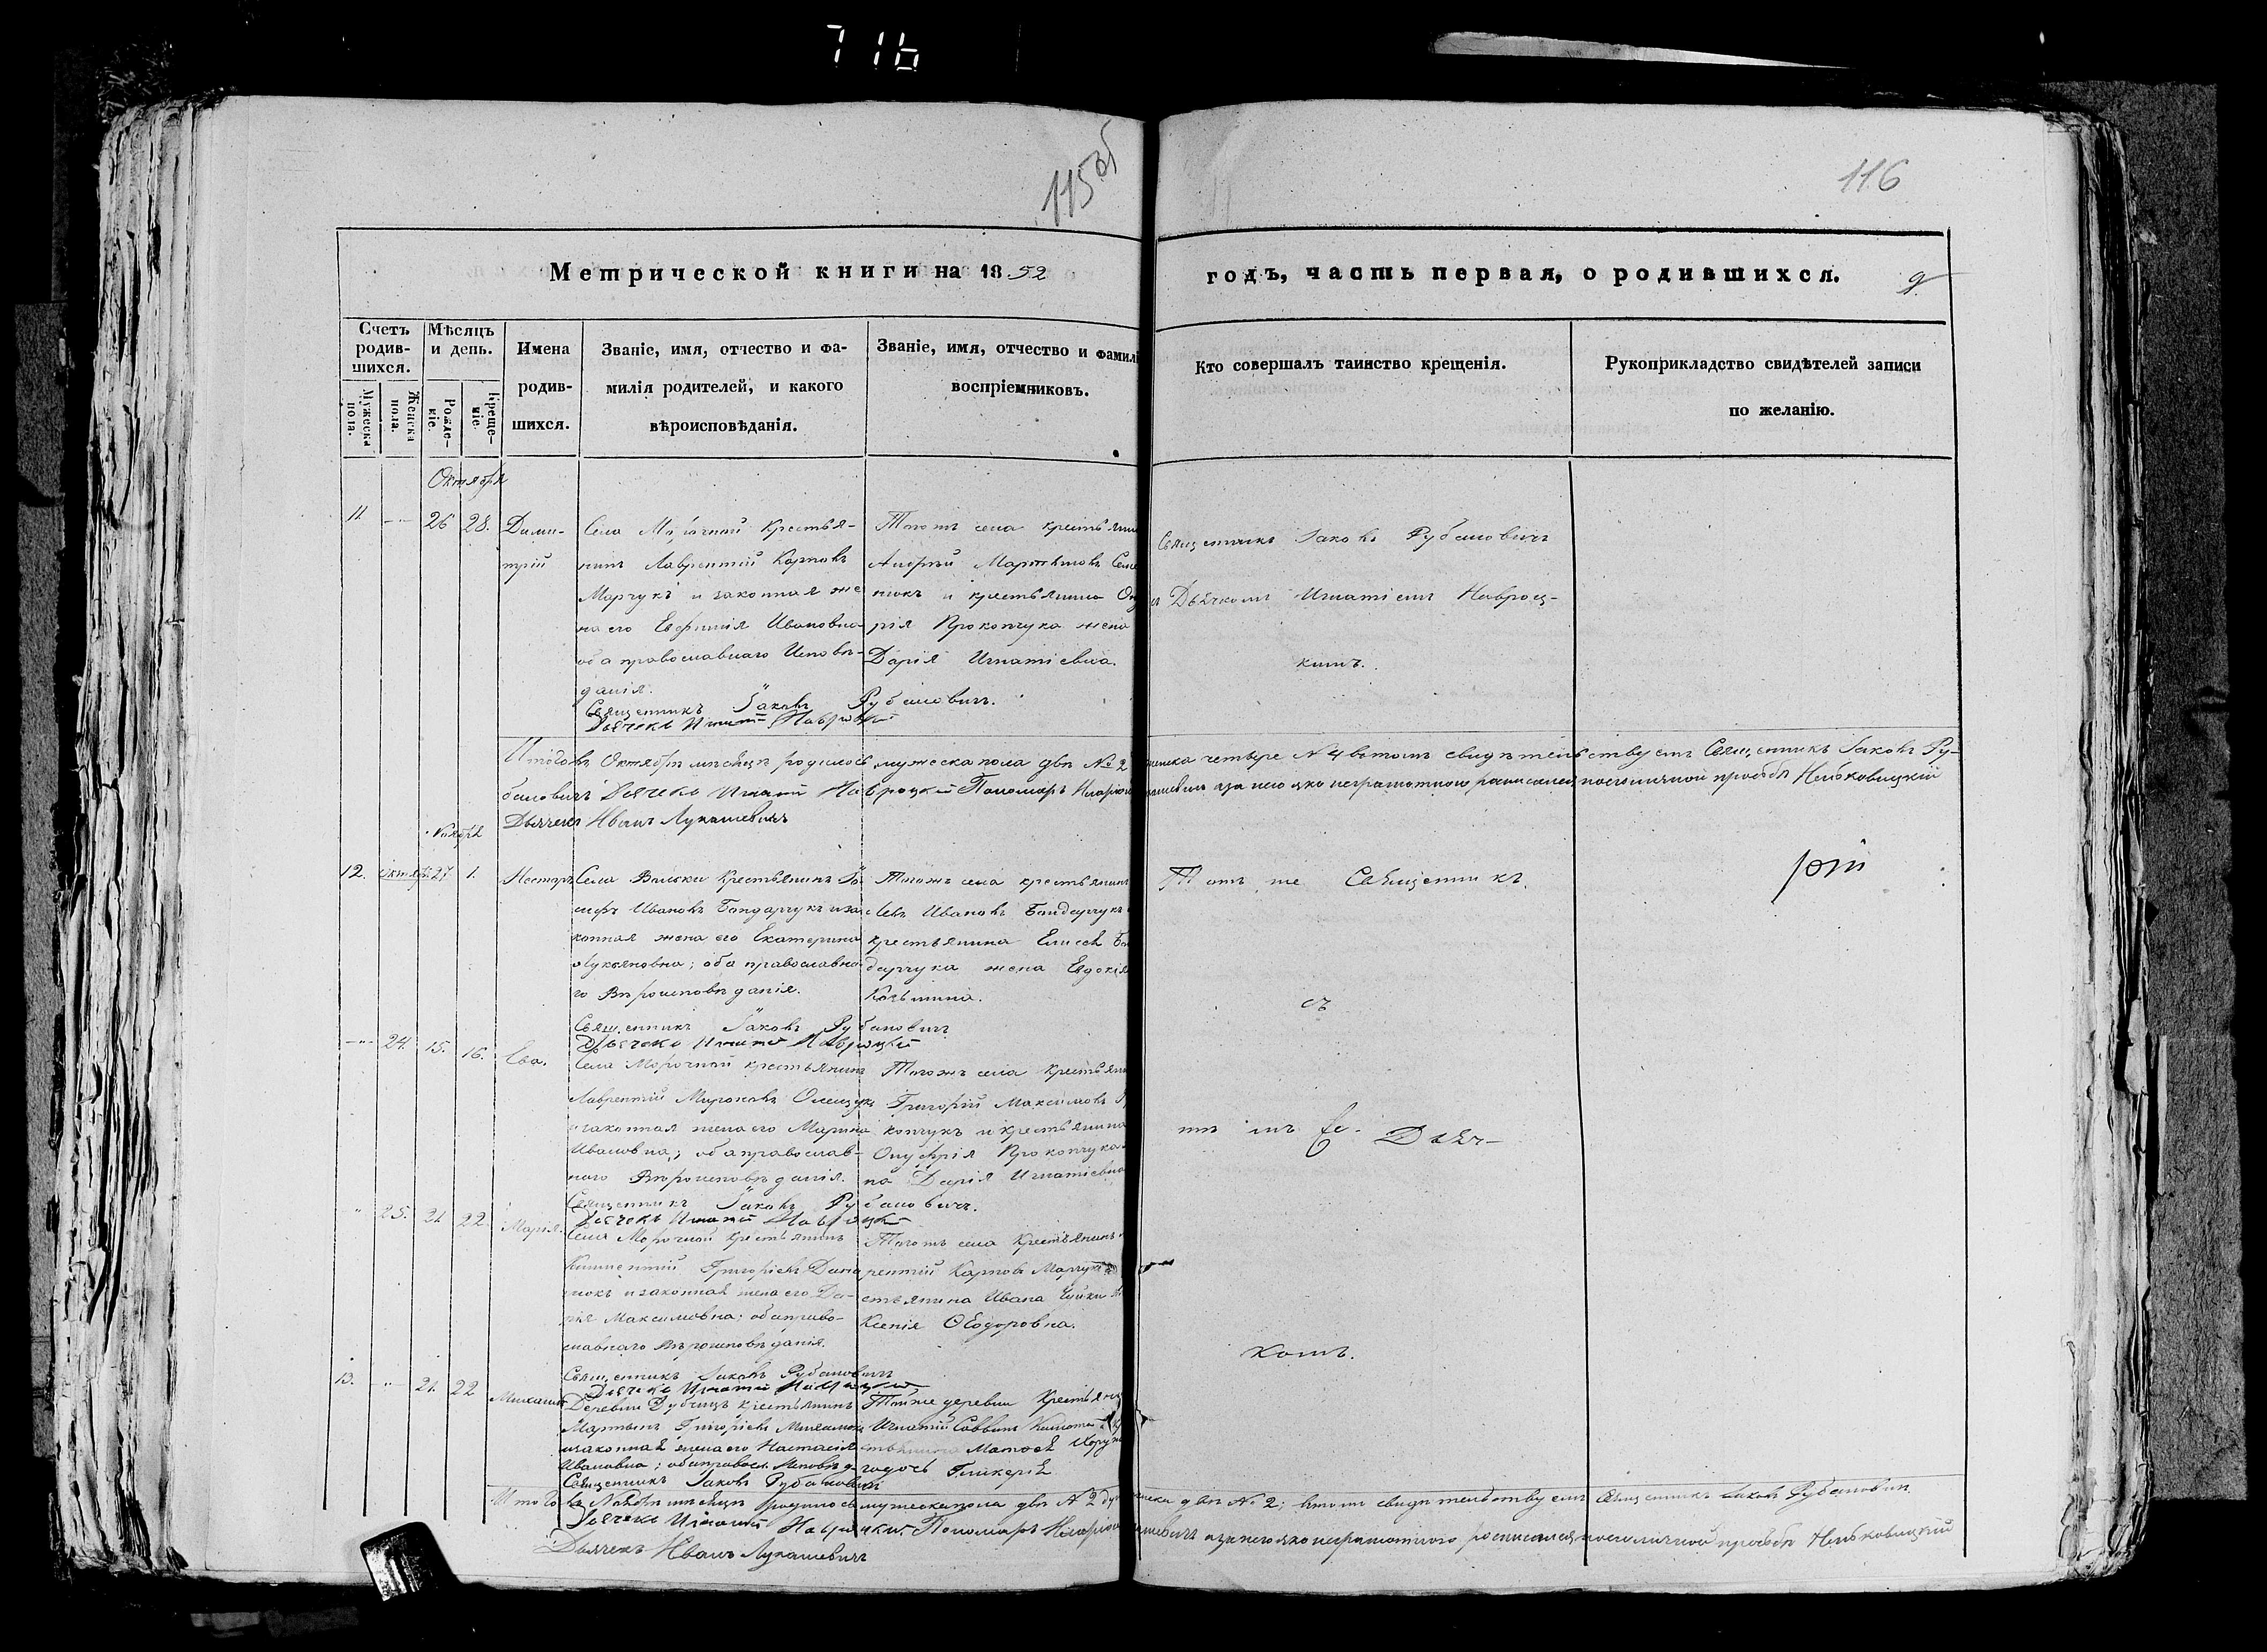 716
115 об
116
Метрической книги на 1852
годъ, часть первая, о родившихся.
9
Счетъ родив-шихся.
Мѣсяцъ и день.
Мужеска пола.
Женска пола.
Рожде-ніе.
Креще-ніе.
Имена
родив-
шихся.
Званіе, имя, отчество и фа-
милія родителей, и какого
вѣроисповѣданія.
Званіе, имя, отчество и фамилі
воспріемниковъ.
Кто совершалъ таинство крещенія.
Рукоприкладство свидѣтелей записи
по желанію.
Октября
11. 26 28. Дими-
трій
Села Морочной Крестья-
нинъ Лаврентій Карповъ
Марчукъ и законная же
на его Евфимія Ивановна
оба православнаго Исповѣ-
данія.
Тогожъ села крестьянин
Андрей Мартиновъ
и крестьянина
рія Прокопчука жена
Дарія Игнатіевна.
Священникъ Іаковъ Рубановичъ
Дьячкомъ Игнатіемъ Навроц-
кимъ.
Священникъ Іаковъ Рубановичъ.
Дьячекъ Игнатій Навроцкій
Итого въ Октябрѣ мѣсяцѣ родилось мужеска пола два № 2 женска четыре № 4 въ томъ свидѣтельствуемъ Священникъ Іаковъ Ру-
бановичъ Дьячекъ Игнатій Навроцкій Пономарь а за него яко неграмотного росписался по его личной просьбѣ
Дьячекъ Иванъ Лукашевичъ
Ноября
12. октяб. 27 1. Несторъ
Села Вильки Крестьянинъ Іо-
сифъ Ивановъ Бондарчукъ и за-
конная жена его Екатерина
Лукьяновна; оба православна-
го Вѣроисповѣданія.
Тогожъ села крестьянинъ
Левъ Ивановъ Бондарчукъ
крестьянина Елисея Бон
дарчука жена Евдокія
Козьмина.
Тотъ же Священникъ.
съ
Священникъ Іаковъ Рубановичъ
Дьячекъ Игнатій Навроцкій
24. 15. 16. Ева.
Села Морочной крестьянинъ
Лаврентій Мироновъ Олещукъ
и законная жена его Марина
Ивановна; оба православ-
наго Вѣроисповѣданія.
Тогожъ села крестьяни
Григорій Максимовъ
копчукъ и крестьянина
Онуфрія Прокопчука
на Дарія Игнатіевна
тѣмъ же Дьяч-
Священникъ Іаковъ Рубановичъ.
Дьячекъ Игнатій Навроцкій
25. 21 22. Марія.
Села Морочной крестьянинъ
Григоріевъ
и законная жена его Да-
рія Максимовна; оба право-
славнаго Вѣроисповѣданія.
Тогожъ села Крестьянинъ
рентій Карповъ Марчукъ
стьянина Ивана
Ксенія Ѳеодоровна.
комъ.
Священникъ Іаковъ Рубановичъ
Дьячекъ Игнатій Навроцкій
13. 21. 22 Михаилъ
Деревни Зубчицъ крестьянинъ
Мартынъ Григоріевъ
и законная жена его Настасія
Ивановна; оба правосл. Исповѣд.
Тойже деревни Крестьянин
Игнатій Саввинъ
стьянина Матѳея
Гликерія
Священникъ Іаковъ Рубановичъ
Итого въ Ноябрѣ мѣсяцѣ родилось мужеска пола два № 2 женска два № 2; въ томъ свидѣтельствуемъ Священникъ Іаковъ Рубановичъ
Дьячекъ Игнатій Навроцкій Пономарь а за него яко неграмотного росписался по его личной просьбѣ
Дьячекъ Иванъ Лукашевичъ